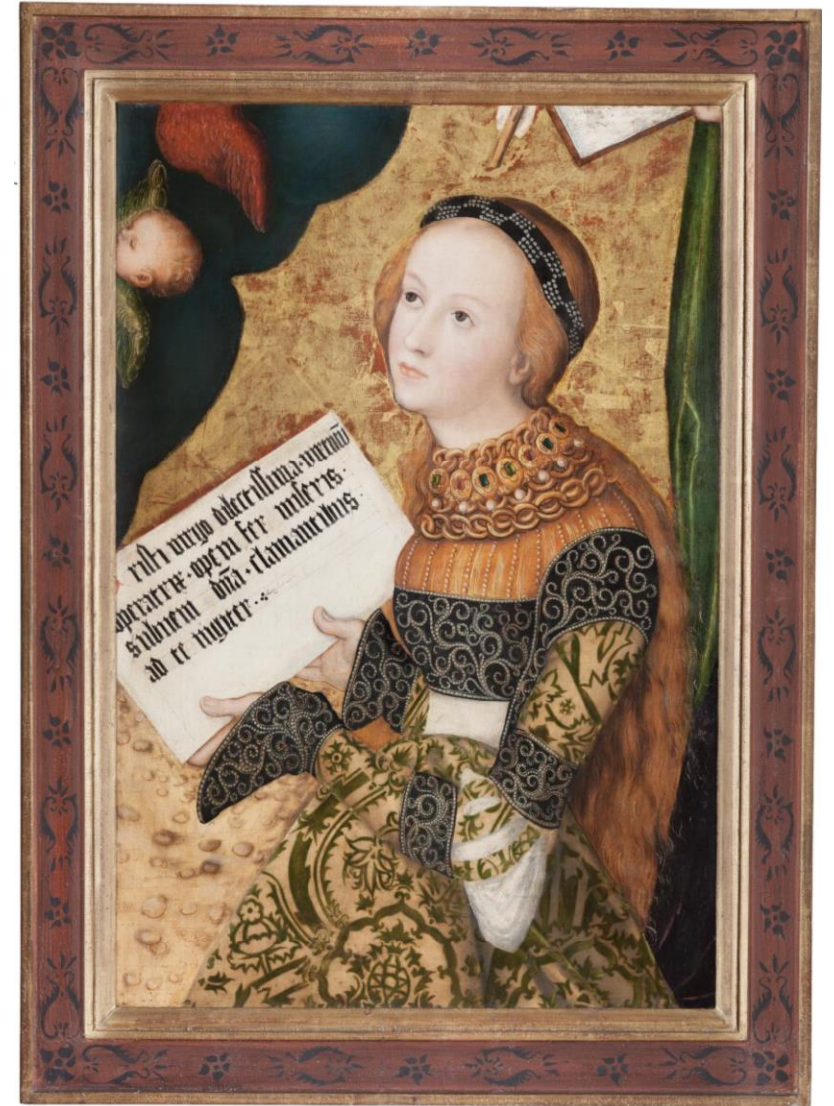 risti virgo dilectissima · virtutū
operatrix · opem fer miseris ·
subveni dn̄a · clamantibus ·
ad te iugiter ·